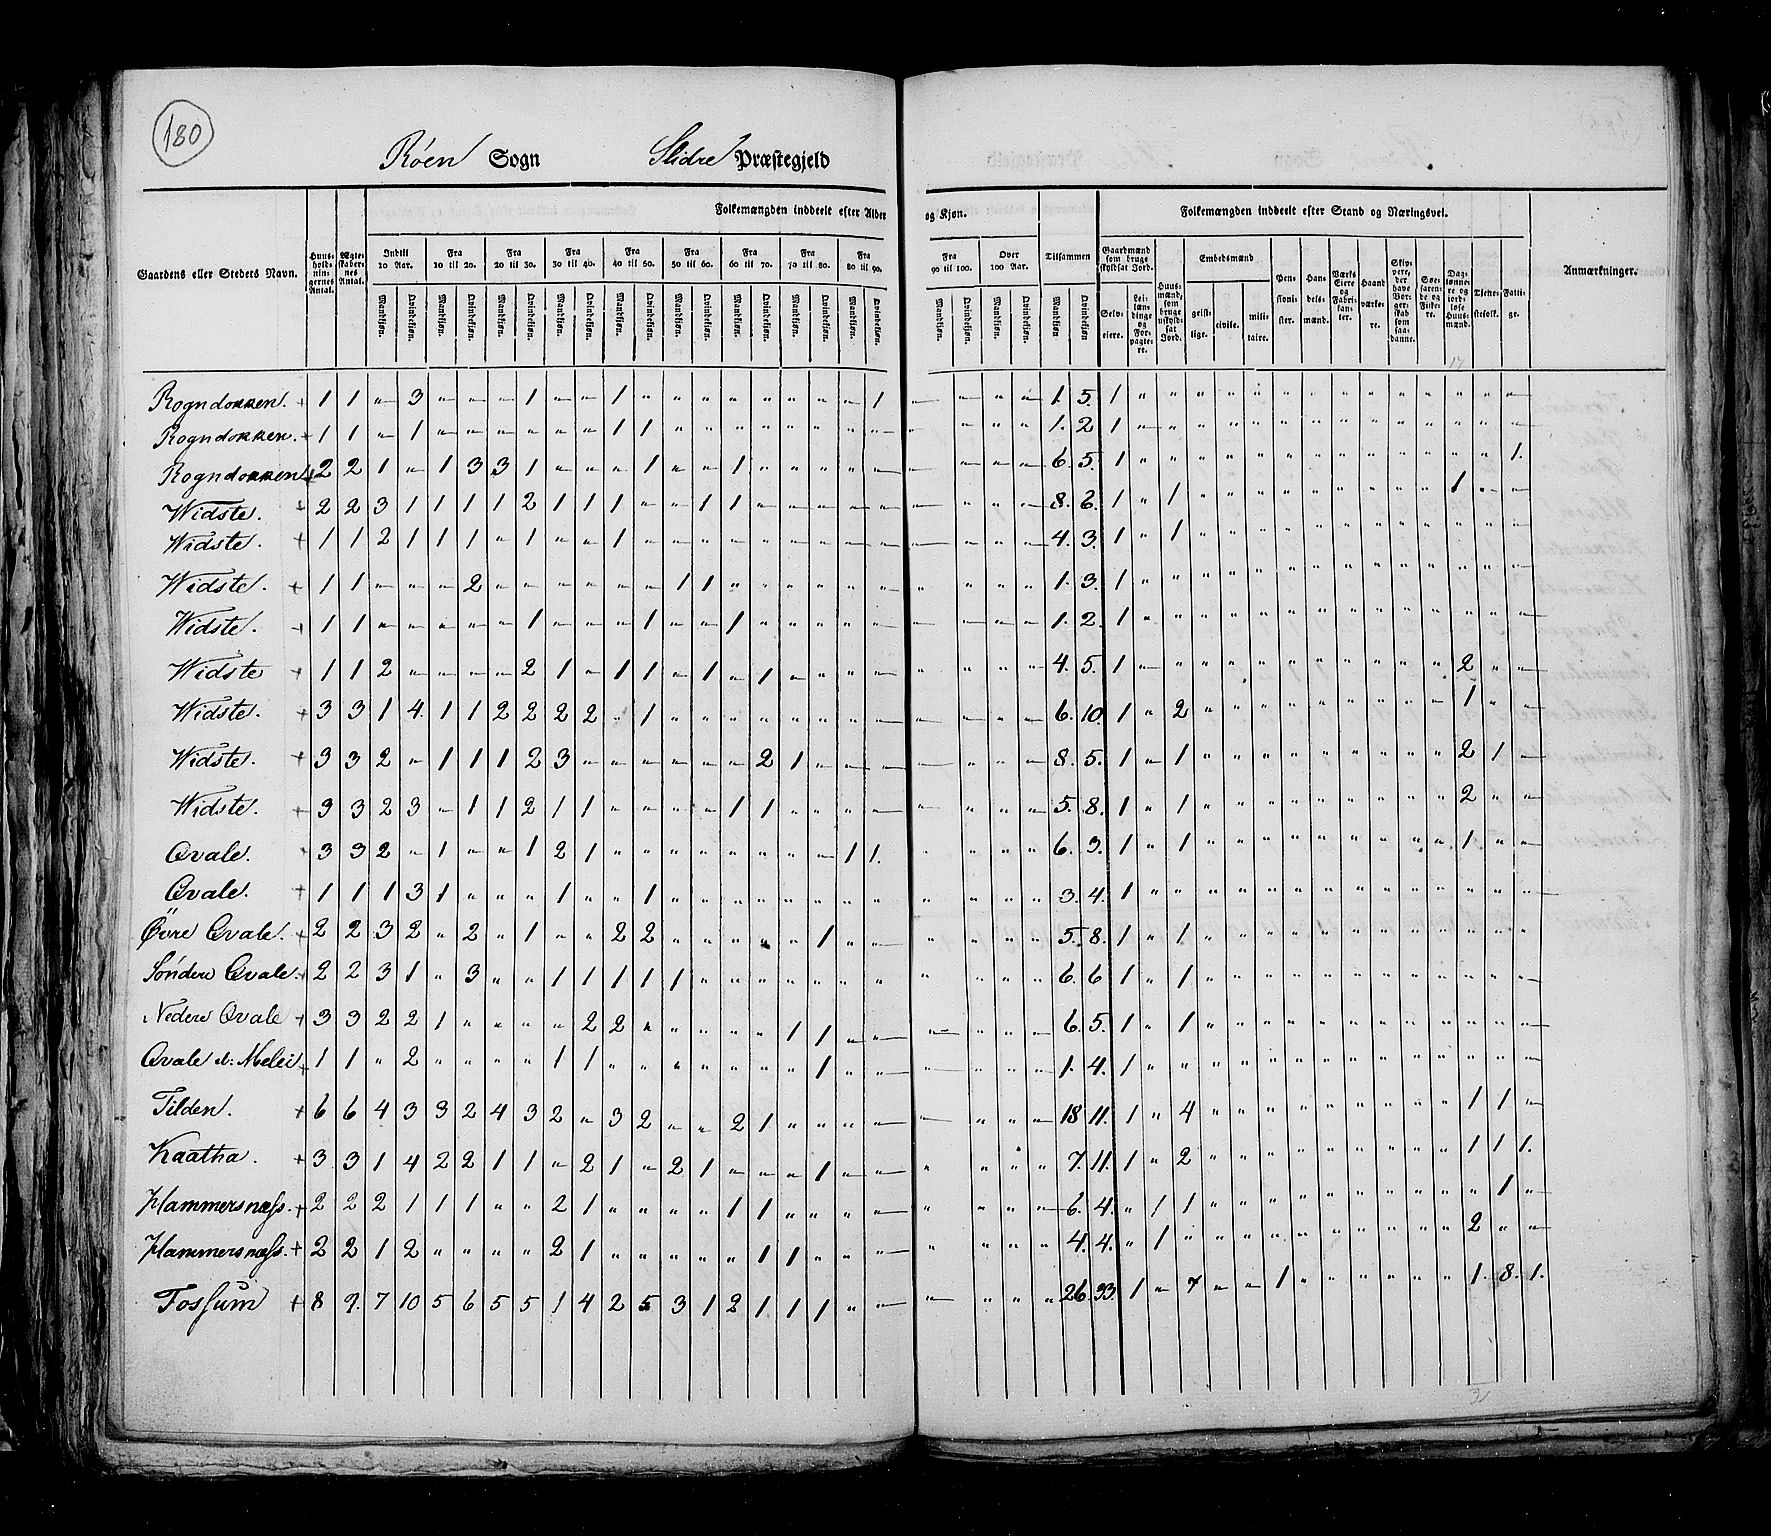 180
Röen Sogn Slidre Præstegjeld
Gaardens eller Stedets Navn. Huusholdningernes Antal. Ægteskabernes Antal. Folkemængden inddeelt efter Alder og Kjøn. Folkemængden inddeelt efter Stand og Næringsvei. Anmærkninger.
Indtil 10 Aar. Fra 10 til 20. Fra 20 til 30. Fra 30 til 40. Fra 40 til 50. Fra 50 til 60. Fra 60 til 70. Fra 70 til 80. Fra 80 til 90. Fra 90 til 100. Over 100 Aar. Tilsammen
Mandkjøn. Qvindekjøn. Mandkjøn. Qvindekjøn. Mandkjøn. Qvindekjøn. Mandkjøn. Qvindekjøn. Mandkjøn. Qvindekjøn. Mandkjøn. Qvindekjøn. Mandkjøn. Qvindekjøn. Mandkjøn. Qvindekjøn. Mandkjøn. Qvindekjøn. Mandkjøn. Qvindekjøn. Mandkjøn. Qvindekjøn. Mandkjøn. Qvindekjøn.
Gaardmænd som bruge skyldsat Jord. Selveiere. Leilændinge og Forpagtere. Huusmænd, som bruge uskyldsat Jord. Embedsmænd geistlige. civile. militaire. Pensionister. Handelsmænd. Værks Eiere og Fabrikanter. Haandværkere. Skippere, der have Borgerskab som saadanne. Søefarende og Fiskere. Daglønnere og jordløse Huusmænd. Tjenestefolk. Fattige.
17
Rogndokken. + 1 1 " 3 " " " 1 " " 1 " " " " " " " " 1 " " " " 1. 5. 1 " " " " " " " " " " " " " "
Rogndokken. + 1 1 " 1 " " " " " " 1 1 " " " " " " " " " " " " 1. 2 1 " " " " " " " " " " " " " "
Rogndokken + 2 2 1 " 1 3 3 1 " " " 1 " " 1 " " " " " " " " " 6. 5. 1 " " " " " " " " " " " " " 1.
Widste. + 2 2 3 1 1 1 1 2 1 1 1 " " 1 1 " " " " " " " " " 8. 6. 1 " 1 " " " " " " " " " 1 " "
Widste. + 1 1 2 1 1 1 " 1 " " 1 " " " " " " " " " " " " " 4. 3. 1 " 1 " " " " " " " " " " " "
Widste. + 1 1 " " " 2 " " " " " " 1 1 " " " " " " " " " " 1. 3. 1 " " " " " " " " " " " " " "
Widste. + 1 1 " " " " " 1 " " " 1 " " 1 " " " " " " " " " 1. 2. 1 " " " " " " " " " " " " " "
Widste + 1 1 2 " " " " 2 1 " 1 1 " 1 " 1 " " " " " " " " 4. 5. 1 " " " " " " " " " " " 2 " "
Widste. + 3 3 1 4. 1 1 2 2 2 2 " 1 " " " " " " " " " " " " 6. 10. 1 " 2 " " " " " " " " " 1 " "
Widste. + 3 3 2 " 1 1 1 2 3 " " " " " " 2 1 " " " " " " " 8. 5. 1 " 1 " " " " " " " " " 2 1 "
Widste. + 3 3 2 3 " 1 1 2 1 1 " " " " 1 1 " " " " " " " " 5. 8. 1 " 1 " " " " " " " " " 2 " "
Qvale. + 3 3 2 " 1 " " 1 2 1 " " " " " " " " 1 1. " " " " 6. 3. 1 " 1 " " " " " " " " " 1 " "
Qvale. + 1 1 1 3 1 " " " 1 " " 1 " " " " " " " " " " " " 3. 4. 1 " " " " " " " " " " " " " "
Övre Qvale. + 2 2 3 2 " 2 " 1 " " 2 2 " " " " " 1 " " " " " " 5. 8. 1 " 1 " " " " " " " " " " " "
Söndere Qvale. + 2 2 3 1 " 3 " " 1 1 1 1 1 " " " " " " " " " " " 6. 6 1 " 1 " " " " " " " " " " " "
Nedere Qvale + 3 3 2 2 1 " " " " 2 2 " " " " " 1 1 " " " " " " 6. 5. 1 " 1 " " " " " " " " " " " "
Qvale Melei + 1 1 " 2 " " " " 1 1 " " " " " " " 1 " " " " " " 1. 4. 1 " " " " " " " " " " " " " "
Tilden. + 6 6 4 3 3 2 4 3 2 " 3 2 " " 2 1 " " " " " " " " 18 11. 1 " 4 " " " " " " " " " 1 1 "
Kaatha. + 3 3 1 4 2 2 1 1 " 2 1 " 2 1 " " " 1 " " " " " " 7. 11. 1 " 2 " " " " " " " " " 1 1 1.
Hammersnæss. + 2 2 2 1 1 1 " " 2 1 " " " " 1 1 " " " " " " " " 6. 4. " 1 1 " " " " " " " " " " 1 "
Hammersnæss. + 2 2 1 2 " " " " 2 1 " " " " " 1 1 " " " " " " " 4. 4. " 1 " " " " " " " " " " 2 " "
Fossum + 8 9. 7 10 5 6 5 5 1 4 2 5 3 1 2 1 1 1 " " " " " " 26. 33. 1 " 7 " " 1 " " " " " " 1. 8. 1.